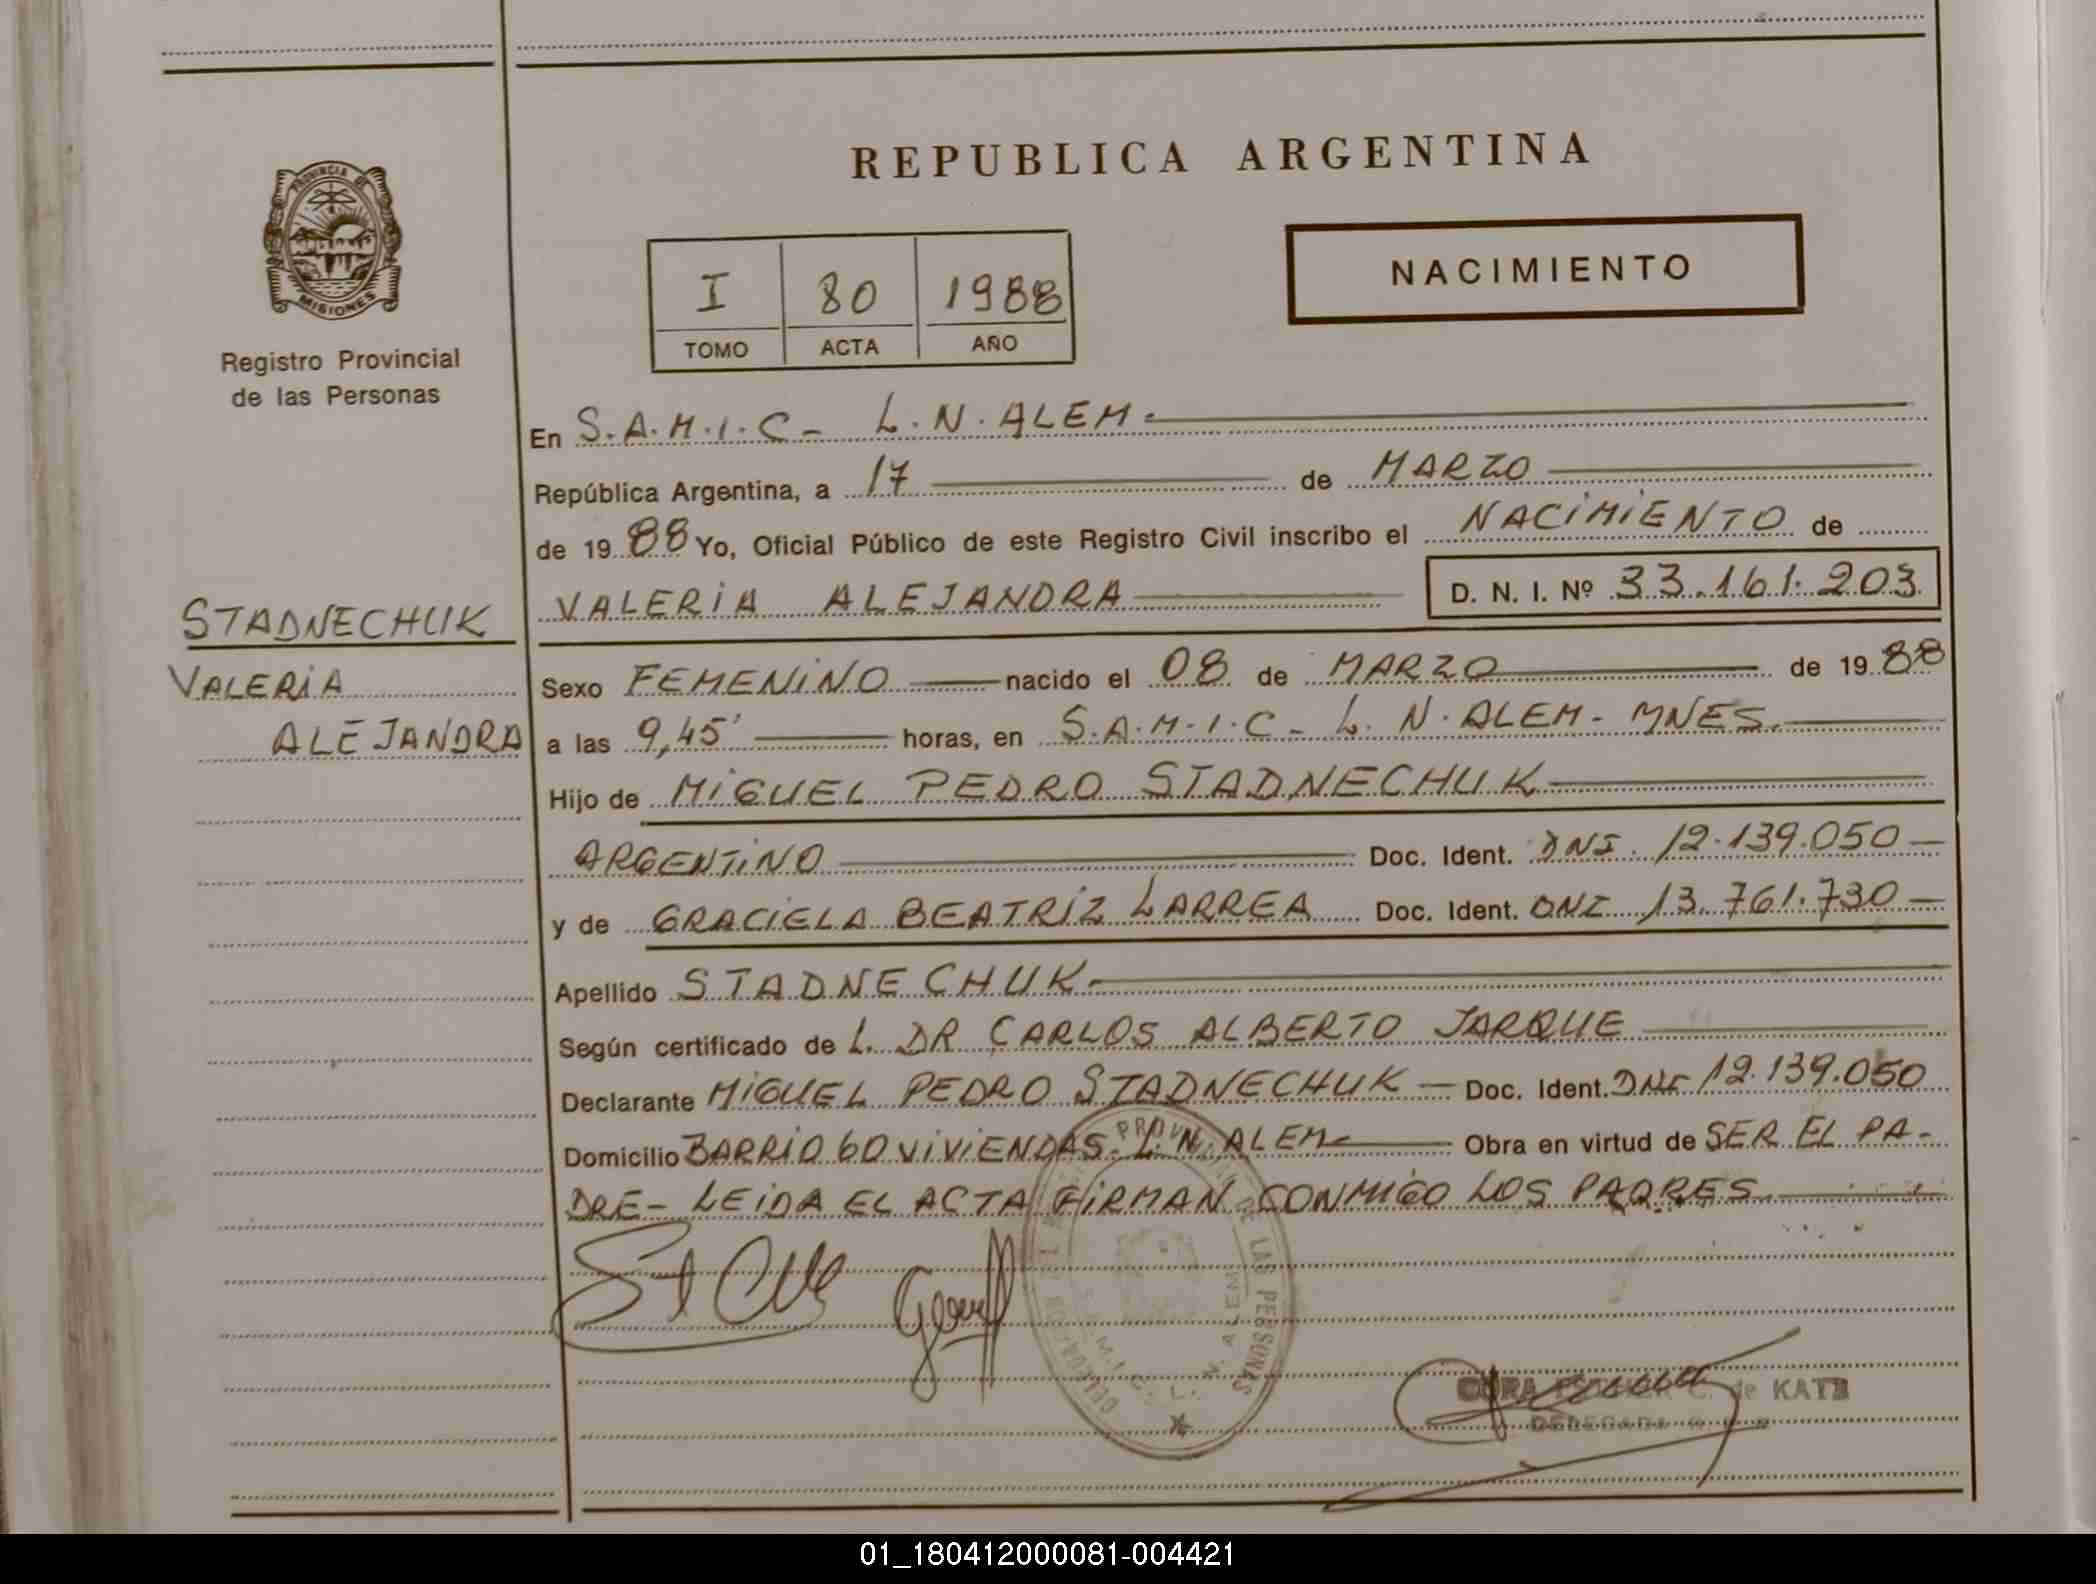 PROVINCIA DE
MISIONES
Registro Provincial
de las Personas
STADNECHUK
VALERIA
ALEJANDRA
REPUBLICA ARGENTINA
I 80 1988
TOMO ACTA AÑO
NACIMIENTO
En S.A.M.I.C - L.N.ALEM.
República Argentina, a 17 de MARZO
de 1988 Yo, Oficial Público de este Registro Civil inscribo el NACIMIENTO de
VALERIA ALEJANDRA D. N. I. Nº 33.161.203
Sexo FEMENINO nacido el 08 de MARZO de 1988
a las 9,45' horas, en S.A.M.I.C - L. N. ALEM - MNES.
Hijo de MIGUEL PEDRO STADNECHUK
ARGENTINO Doc. Ident. DNI. 12.139.050 -
y de GRACIELA BEATRIZ LARREA Doc. Ident. DNI 13.761.730 -
Apellido STADNECHUK
Según certificado de L. DR CARLOS ALBERTO JARQUE
Declarante MIGUEL PEDRO STADNECHUK - Doc. Ident. DNI 12.139.050
Domicilio BARRIO 60 VIVIENDAS - L.N. ALEM Obra en virtud de SER EL PA-
DRE - LEIDA EL ACTA FIRMAN CONMIGO LOS PADRES
DE LAS PERSONAS
S.A.M.I.C. L. N. ALEM
de KATZ
DELEGADA
01_180412000081-004421